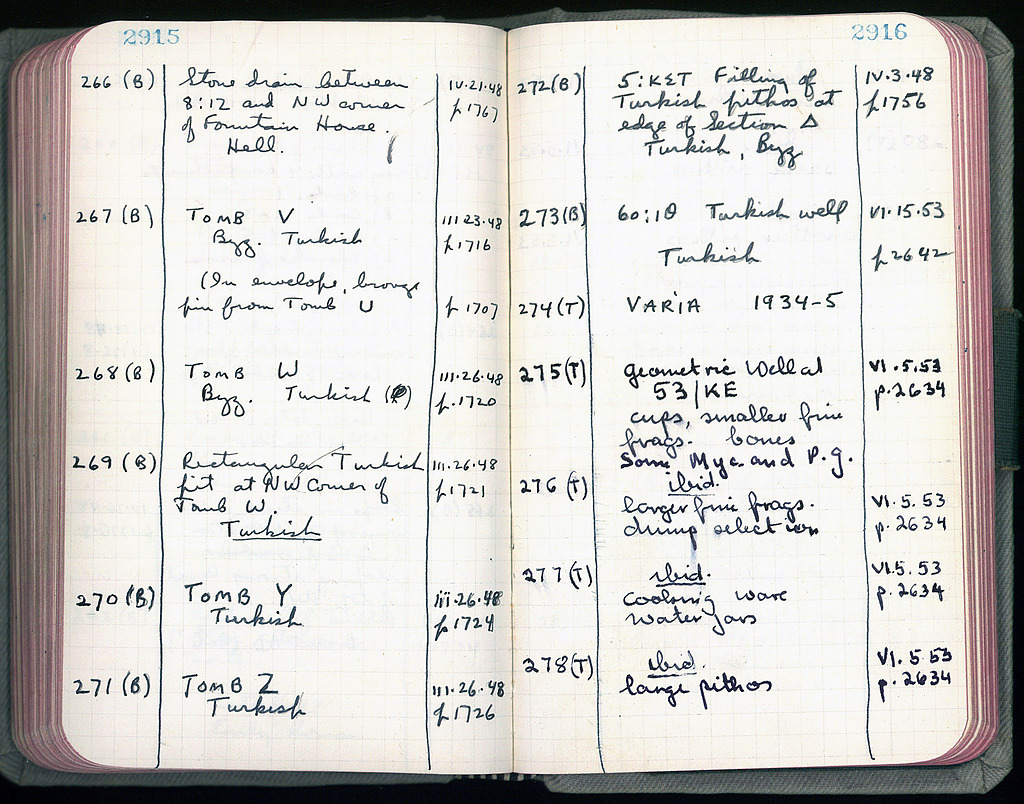 2915
266 (B) Stone drain between IV.21.48
8:12 and NW corner p.1767
of Fountain House.
Hell.
267 (B) TOMB V III.23.48
Byz. Turkish p.1716
(In envelope, bronze
pin from Tomb U p.1707
268 (B) TOMB W III.26.48
Byz. Turkish p.1720
269 (B) Rectangular Turkish III.26.48
pit at NW Corner of p.1721
Tomb W.
Turkish
270 (B) TOMB Y III.26.48
Turkish p.1724
271 (B) TOMB Z III.26.48
Turkish p.1726
2916
272 (B) 5:KET Filling of IV.3.48
Turkish pithos at p.1756
edge of Section Δ
Turkish, Byz
273 (B) 60:10 Turkish well VI.15.53
Turkish p.2642
274 (T) VARIA 1934-5
275 (T) geometric Well at VI.5.53
53/KE p.2634
cups, smaller fine
frags. bones
Some Myc. and P.g.
276 (T) ibid.
larger fine frags. VI.5.53
dump selection p.2634
277 (T) ibid. VI.5.53
cooking ware p.2634
water jars
278 (T) ibid. VI.5.53
large pithos p.2634